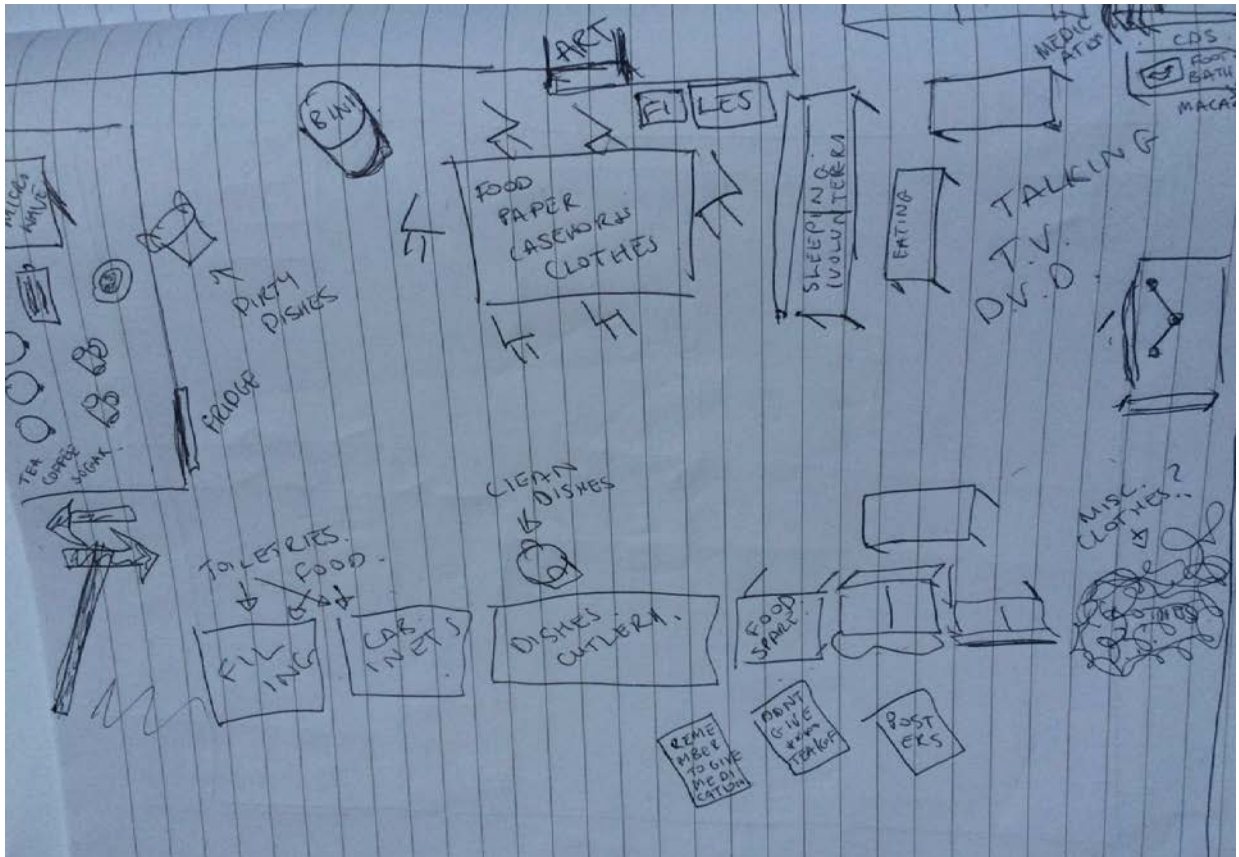 ART
FI LES
BIN
MEDIC
ATION
CDS
FOOT
BATH
MICRO
WAVE
FOOD
PAPER
CASEWORK
CLOTHES
SLEEPING.
(VOLUNTEERS
EATING
TALKING
T.V.
D.V.D
DIRTY
DISHES
FRIDGE
TEA
COFFEE
SUGAR.
CLEAN
DISHES
MISC.
CLOTHES?
TOILETRIES.
FOOD.
FIL
ING
CAB.
INETS
DISHES
CUTLERY.
FOOD
SPARE.
REME
MBER
TO GIVE
MEDI
CATION
DONT
GIVE
POST
ERS